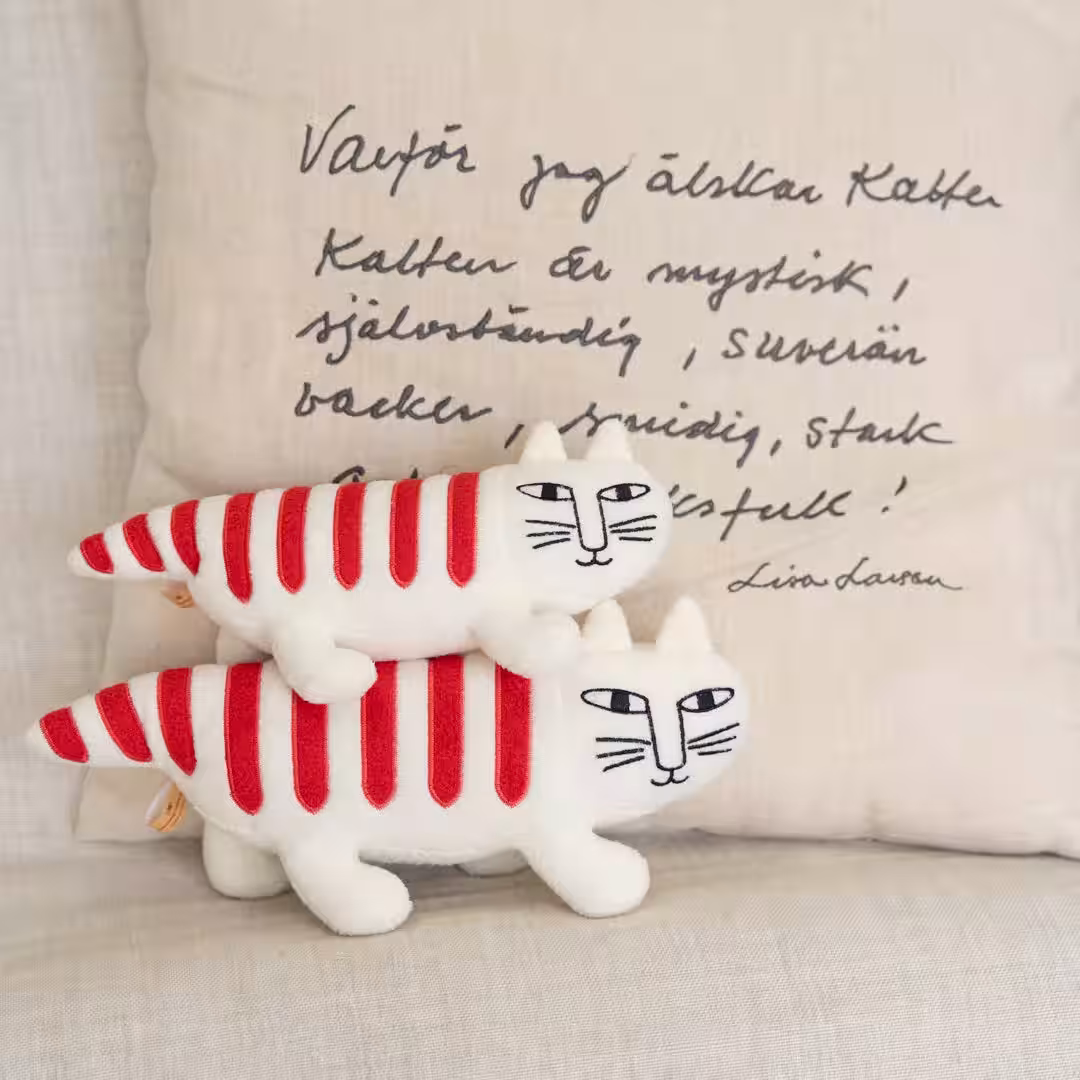 Varför jag älskar Katten
Katten är mystisk,
självständig, suverän
vacker, smidig, stark
!
Lisa Larson